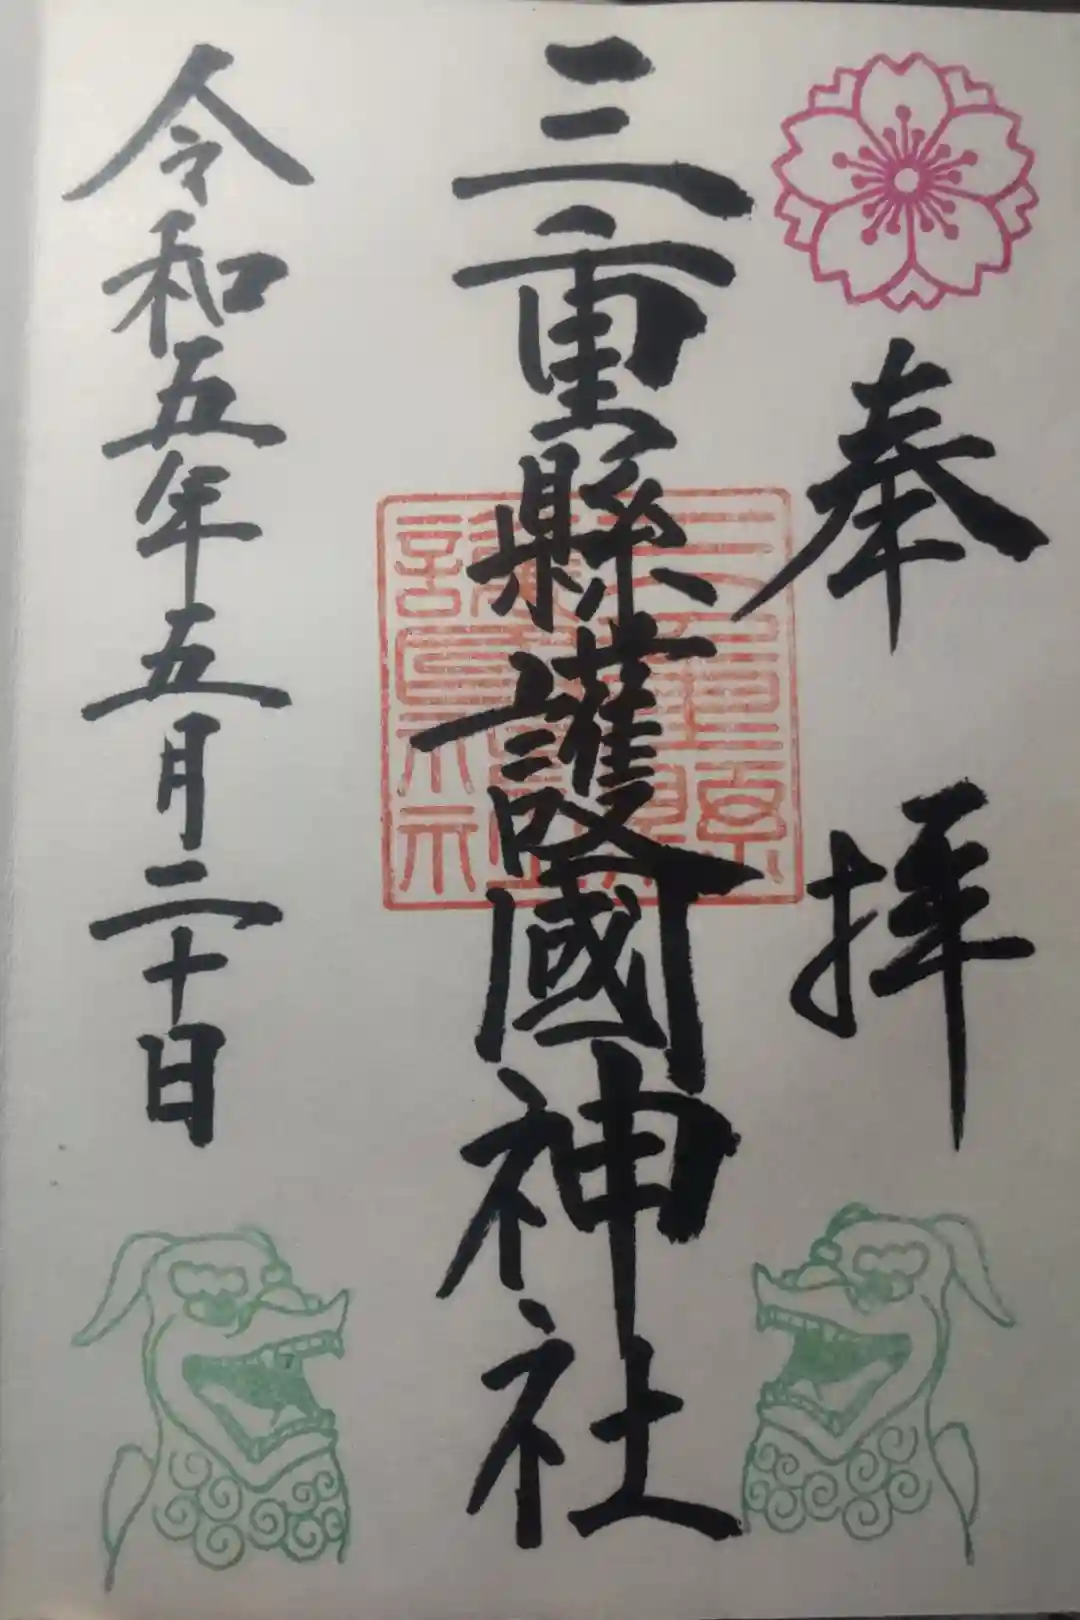 奉拝
三重縣護國神社
三重縣護國神社
令和五年五月二十日